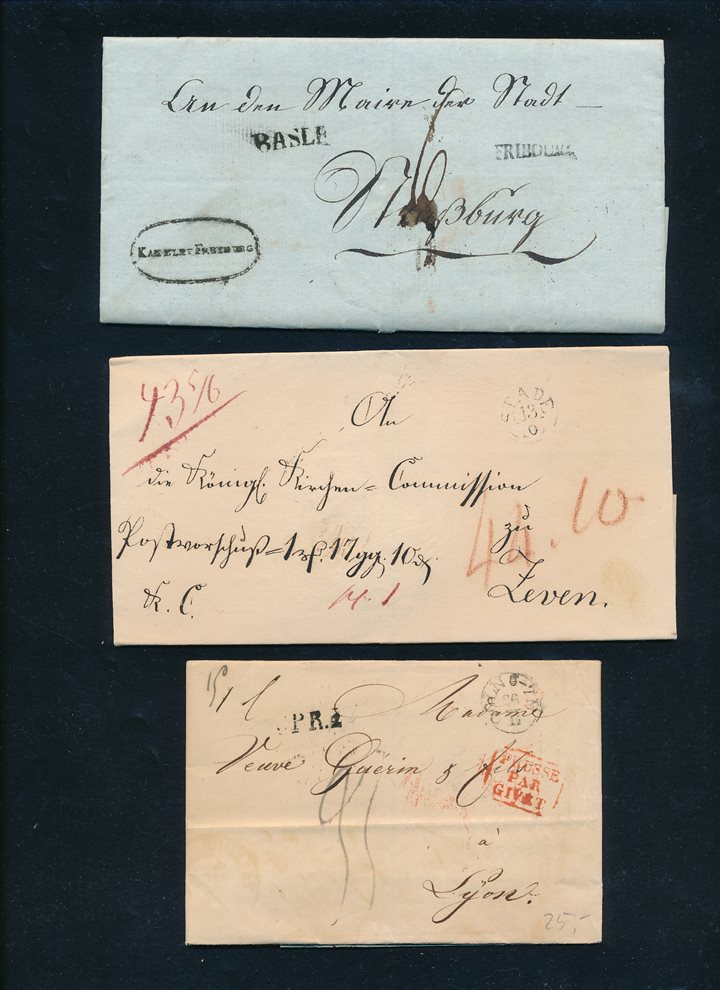 An den Maire der Stadt
BASLE
FRIBOURG
Straßburg
KANZLEY FREYBURG
43 5/6
STADE
13
An
die Königl. Kirchen-Commission
zu
44.10
Postvorschuß 1 17 gg. 10
Zeven.
K. C.
14.1
PR.2
26
11
Madame
Veuve Guerin & fils
PRUSSE
PAR
GIVET
à
Lyon.
25,-